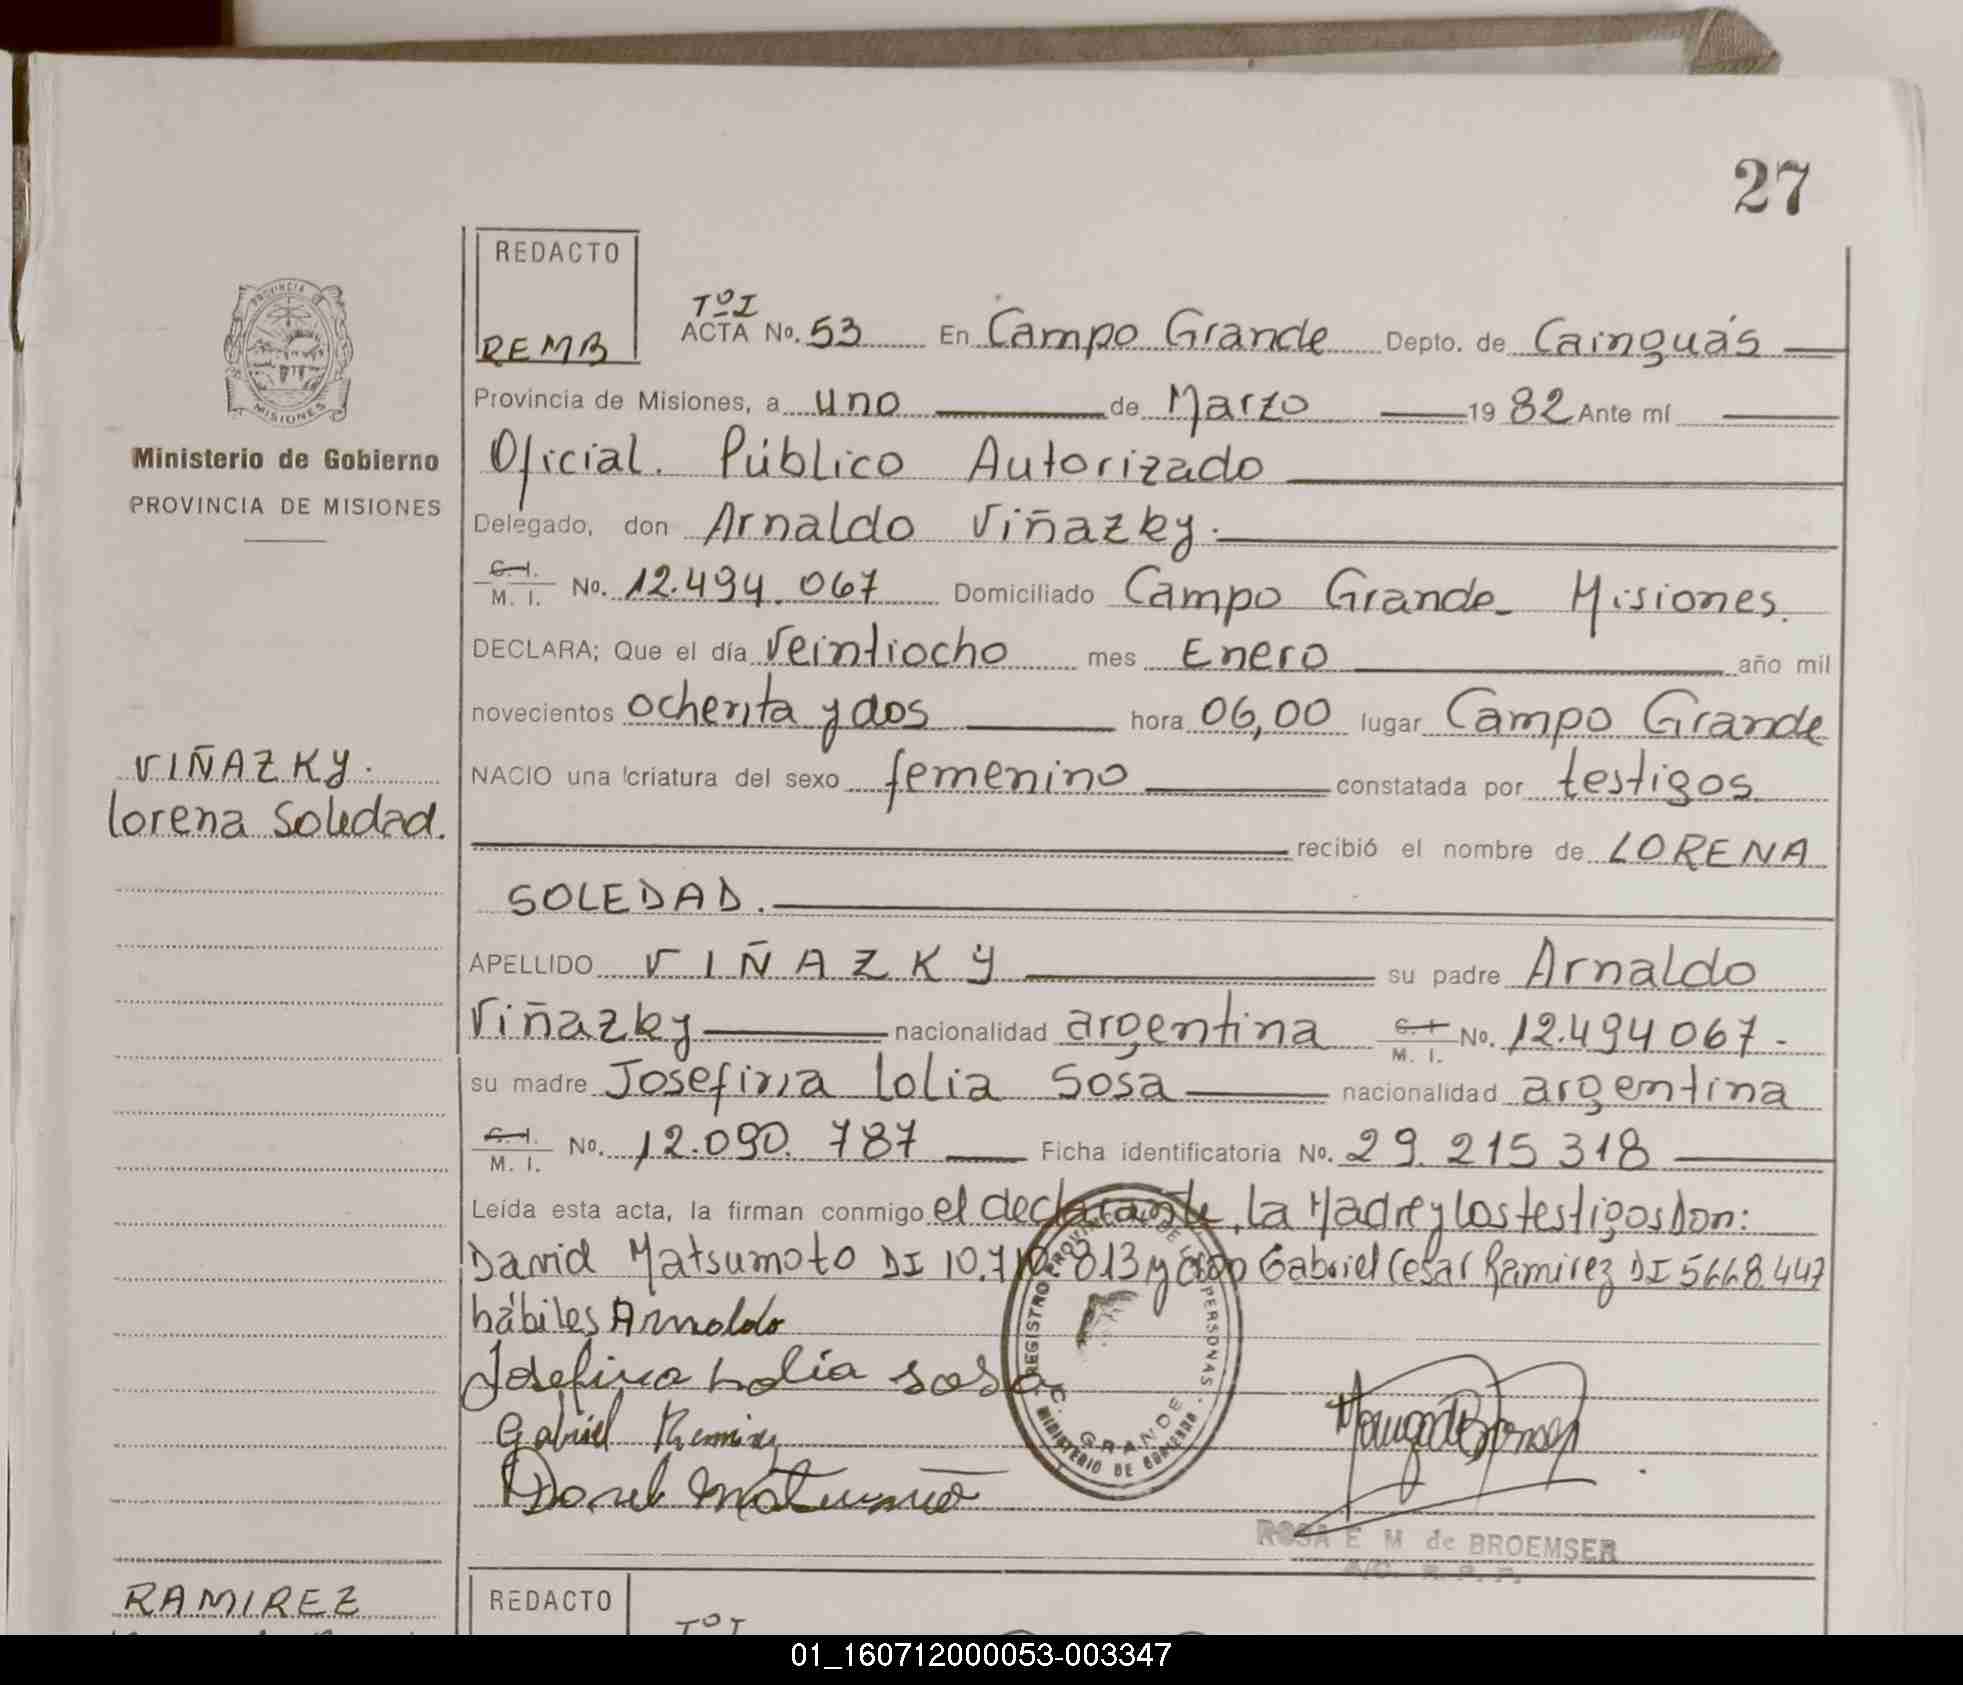 27
REDACTO
REMB
PROVINCIA DE
MISIONES
Ministerio de Gobierno
PROVINCIA DE MISIONES
VIÑAZKY.
Lorena Soledad.
Tº I
ACTA No. 53 En Campo Grande Depto. de Cainguás
Provincia de Misiones, a uno de Marzo 1982 Ante mí
Oficial. Público Autorizado
Delegado, don Arnaldo Viñazky.
C. I.
M. I. No. 12.494.067 Domiciliado Campo Grande - Misiones.
DECLARA; Que el día Veintiocho mes Enero año mil
novecientos ochenta y dos hora 06,00 lugar Campo Grande
NACIO una criatura del sexo femenino constatada por testigos
recibió el nombre de LORENA
SOLEDAD.
APELLIDO VIÑAZKY su padre Arnaldo
Viñazky nacionalidad argentina C. I. M. I. No. 12.494067.-
su madre Josefina Lolia Sosa nacionalidad argentina
C. I.
M. I. No. 12.090.787 Ficha identificatoria No. 29.215318
Leída esta acta, la firman conmigo el declarante, la Madre y los testigos Don:
David Matsumoto DI 813 y don Gabriel Cesar Ramirez DI 5668.447
hábiles Arnoldo
Josefina Lolia Sosa
Gabriel Remirez
REGISTRO PROVINCIAL DE LAS PERSONAS
C. GRANDE
MINISTERIO DE GOBIERNO
ROSA E M de BROEMSER
RAMIREZ
REDACTO
Tº I
01_160712000053-003347